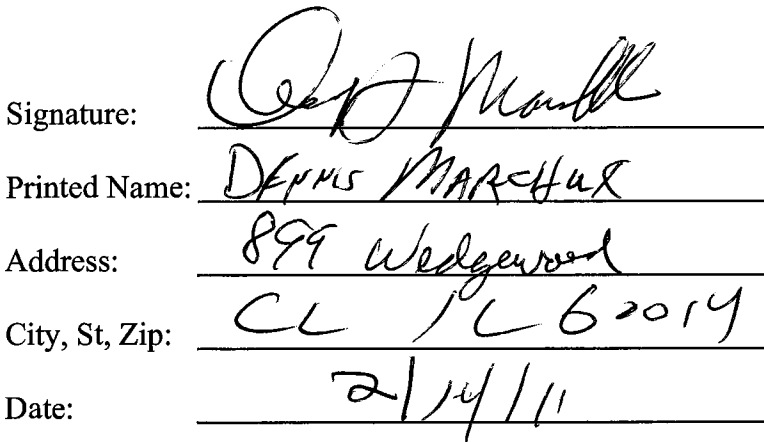 Signature:
Printed Name: DENNIS MARCHUK
Address: 899 Wedgewood
City, St, Zip: CL IL 60014
Date: 2/14/11